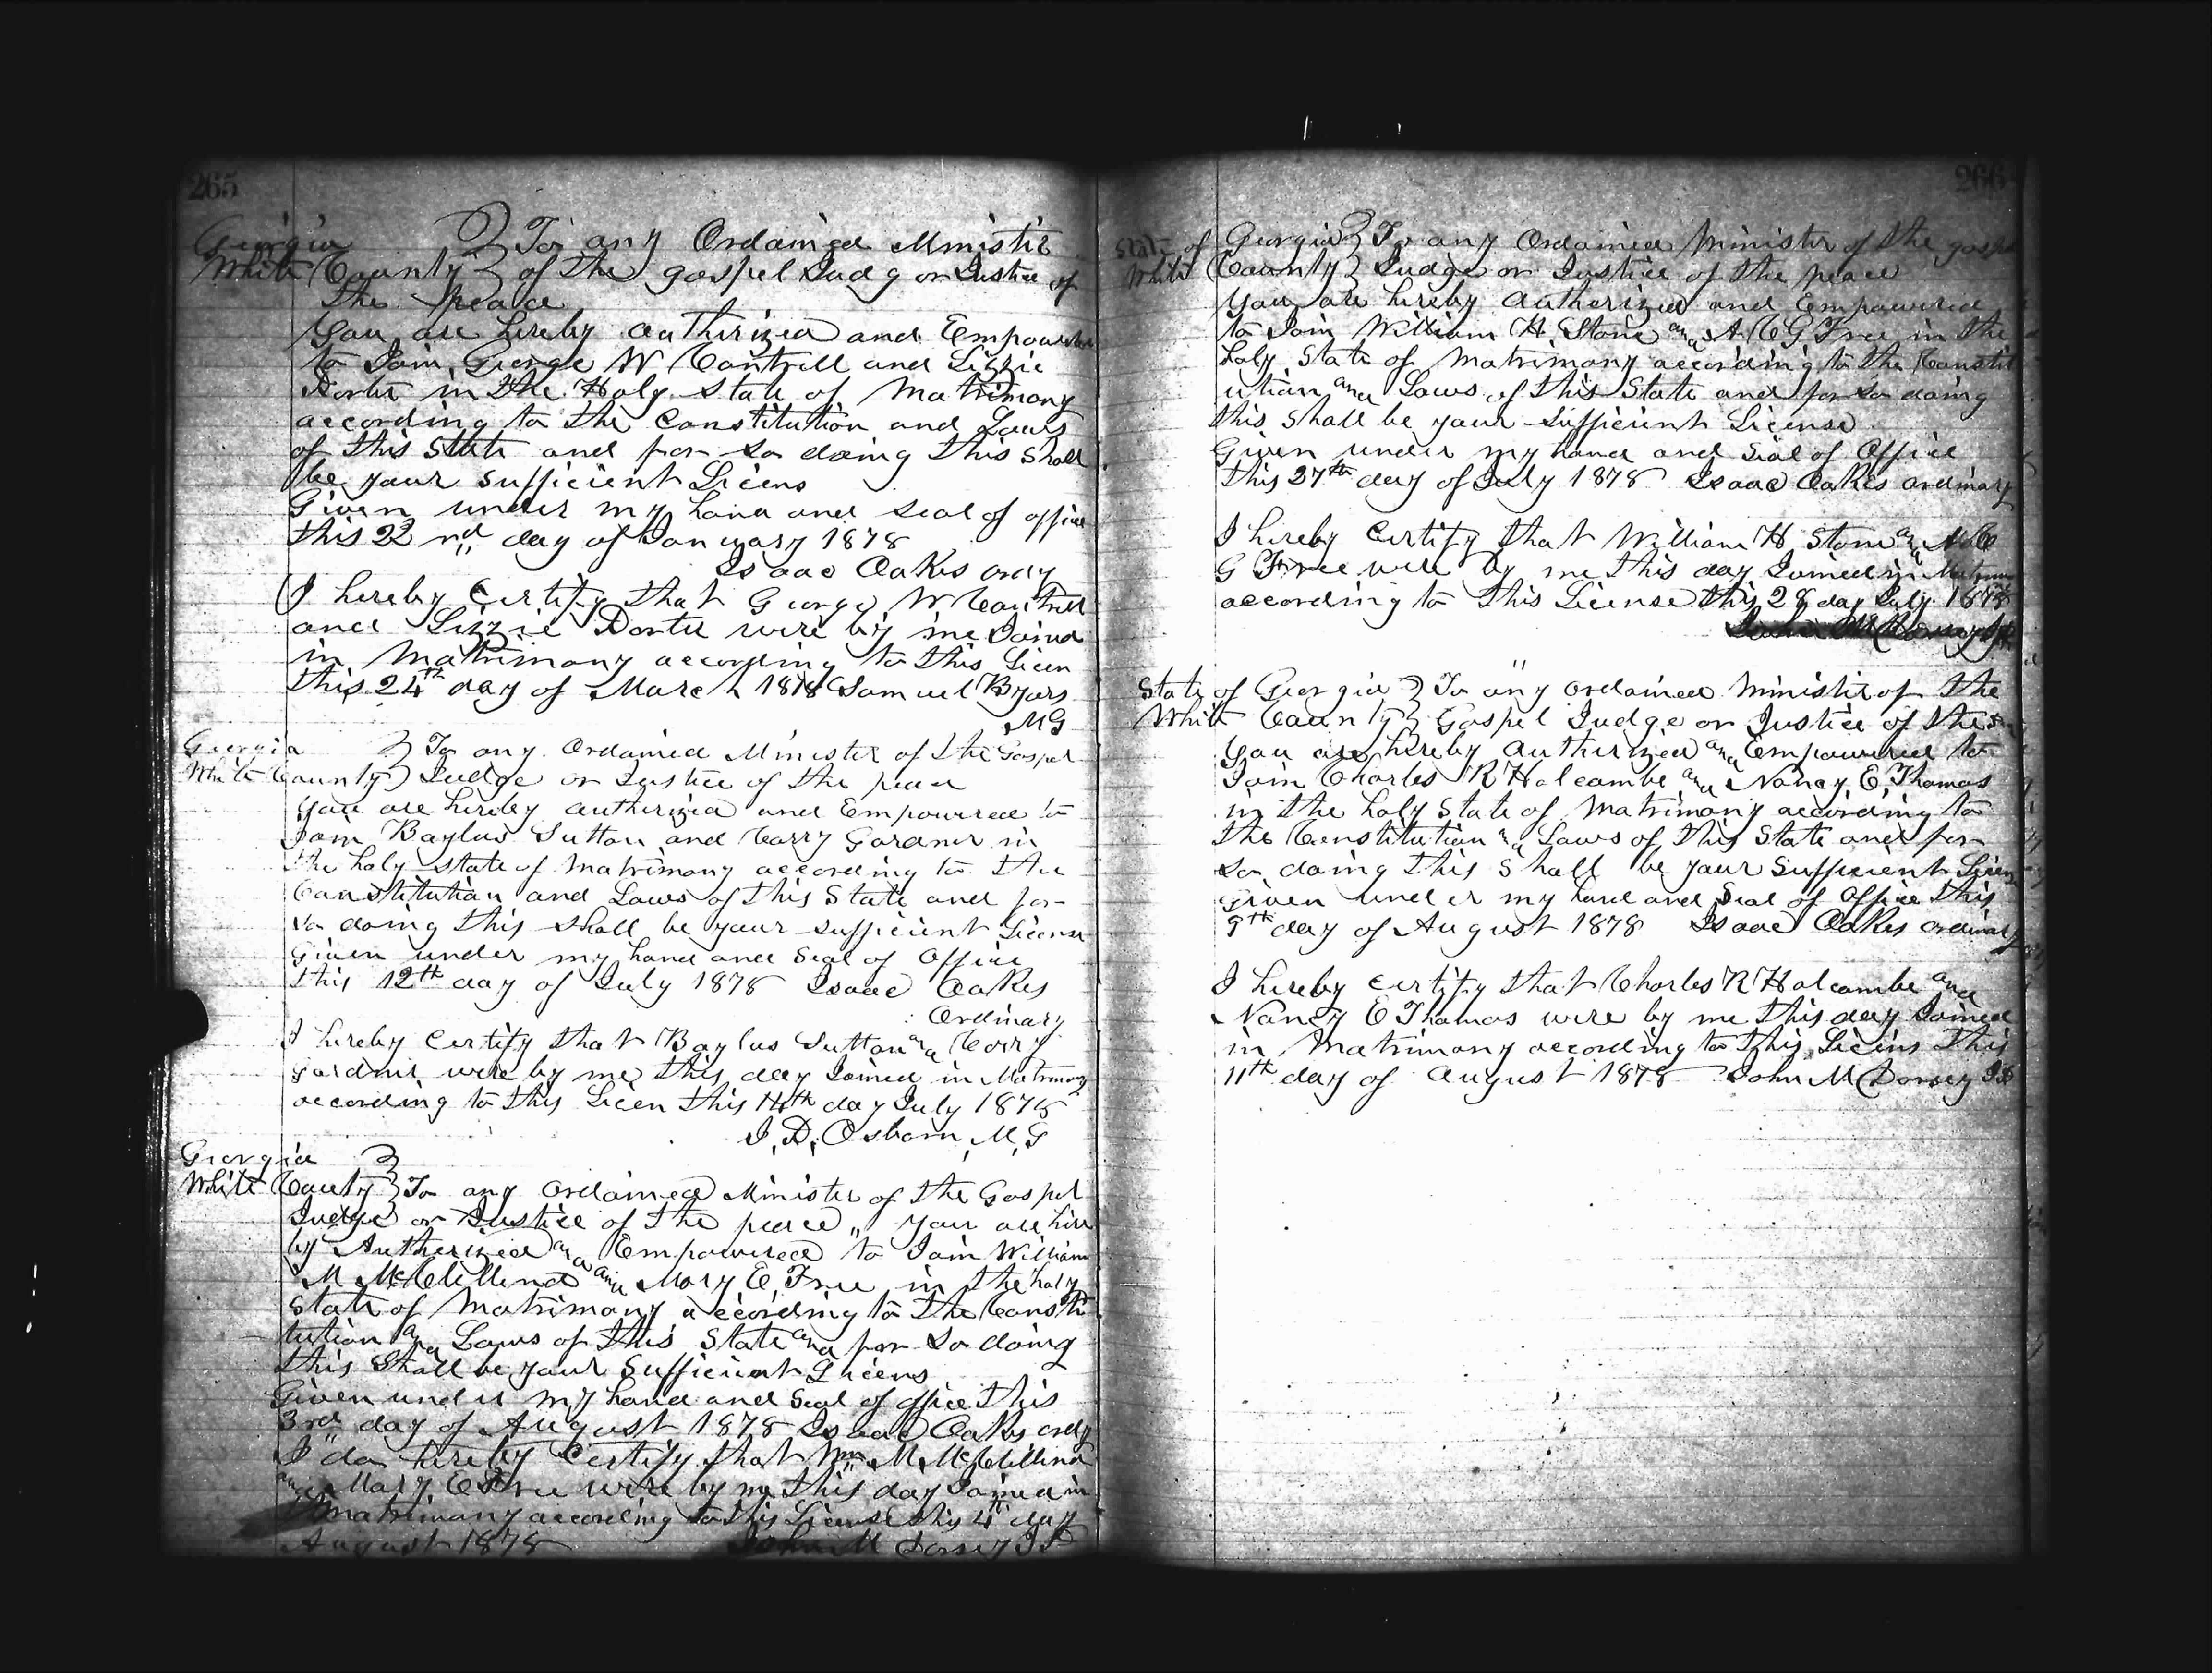 265
Georgia } To any Ordained Minister
White County } of the gospel Judg or Justice of
the peace
You are hereby authorized and Empowered
to Join George W Cantrell and Lizzie
in the Holy State of Matrimony
according to the Constitution and Laws
of this State and for so doing this shall
be your sufficient Licens
Given under my hand and seal of office
this 22 nd day of January 1878
Isaac Oakes ordy
I hereby Certify that George W Cantrell
and Lizzie were by me Joind
in Matrimony according to this Licen
this 24th day of March 1878 Samuel Byars
MG
Georgia } To any Ordained Minister of the Gospel
White County } Judge or Justice of the peace
You are hereby authorized and Empowered to
Join Baylus Sutton and Carry Gardner in
the holy state of Matrimony according to the
Constitution and Laws of this State and for
so doing this shall be your sufficient License
Given under my hand and Seal of Office
this 12th day of July 1878 Isaac Oakes
Ordinary
I hereby Certify that Baylus Sutton and Carry
Gardner were by me this day Joined in Matrimony
according to this Licen this 14th day July 1878
J, D, Osborn, M, G
Georgia }
White County } To any Ordained Minister of the Gospel
Judge or Justice of the peace " You are here
by Authorized and Empowered to Join William
M McClellend and Mary E Free in the holy
State of Matrimony according to the Consti
tution and Laws of this State and for so doing
this Shall be your Sufficient Licens
Given under my hand and Seal of office this
3rd day of August 1878 Isaac Oakes ordy
I do hereby Certify that Wm M McClellend
and Mary E Free were by me this day Joined in
Matrimony according to this License this 4th day
August 1878 John M Dorsey JP
266
State of Georgia } To any Ordained Minister of the gospel
White County } Judge or Justice of the peace
You are hereby Authorized and Empowered
to Join William H Stone and A C G Free in the
holy State of Matrimony according to the Constit
ution and Laws of this State and for so doing
this shall be your Sufficient License
Given under my hand and Seal of Office
this 27th day of July 1878 Isaac Oakes ordinary
I hereby Certify that William H Stone and
G Free were by me this day Joined in Matrimony
according to this License this 28 day July 1878
John M Dorsey JP
State of Georgia } To any ordained Minister of the
White County } Gospel Judge or Justice of the
You are hereby Authorized and Empowered to
Join Charles R Holcombe and Nancy E Thomas
in the holy State of Matrimony according to
the Constitution and Laws of this State and for
so doing this Shall be your Sufficient Licens
Given under my hand and Seal of Office this
9th day of August 1878 Isaac Oakes ordinary
I hereby certify that Charles R Holcombe and
Nancy E Thomas were by me this day Joined
in Matrimony according to this Licens This
11th day of August 1878 John M Dorsey JP